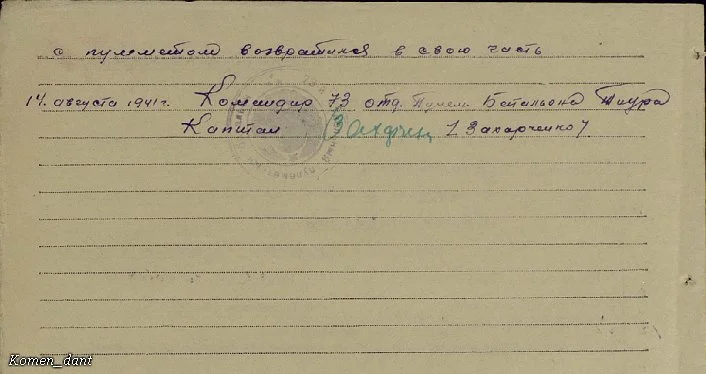 с пулеметом возвратился в свою часть
14 августа 1941 г. Командир 73 отд. Пулем. Батальона Тиура
Капитан (Захарченко)
Komen_dant